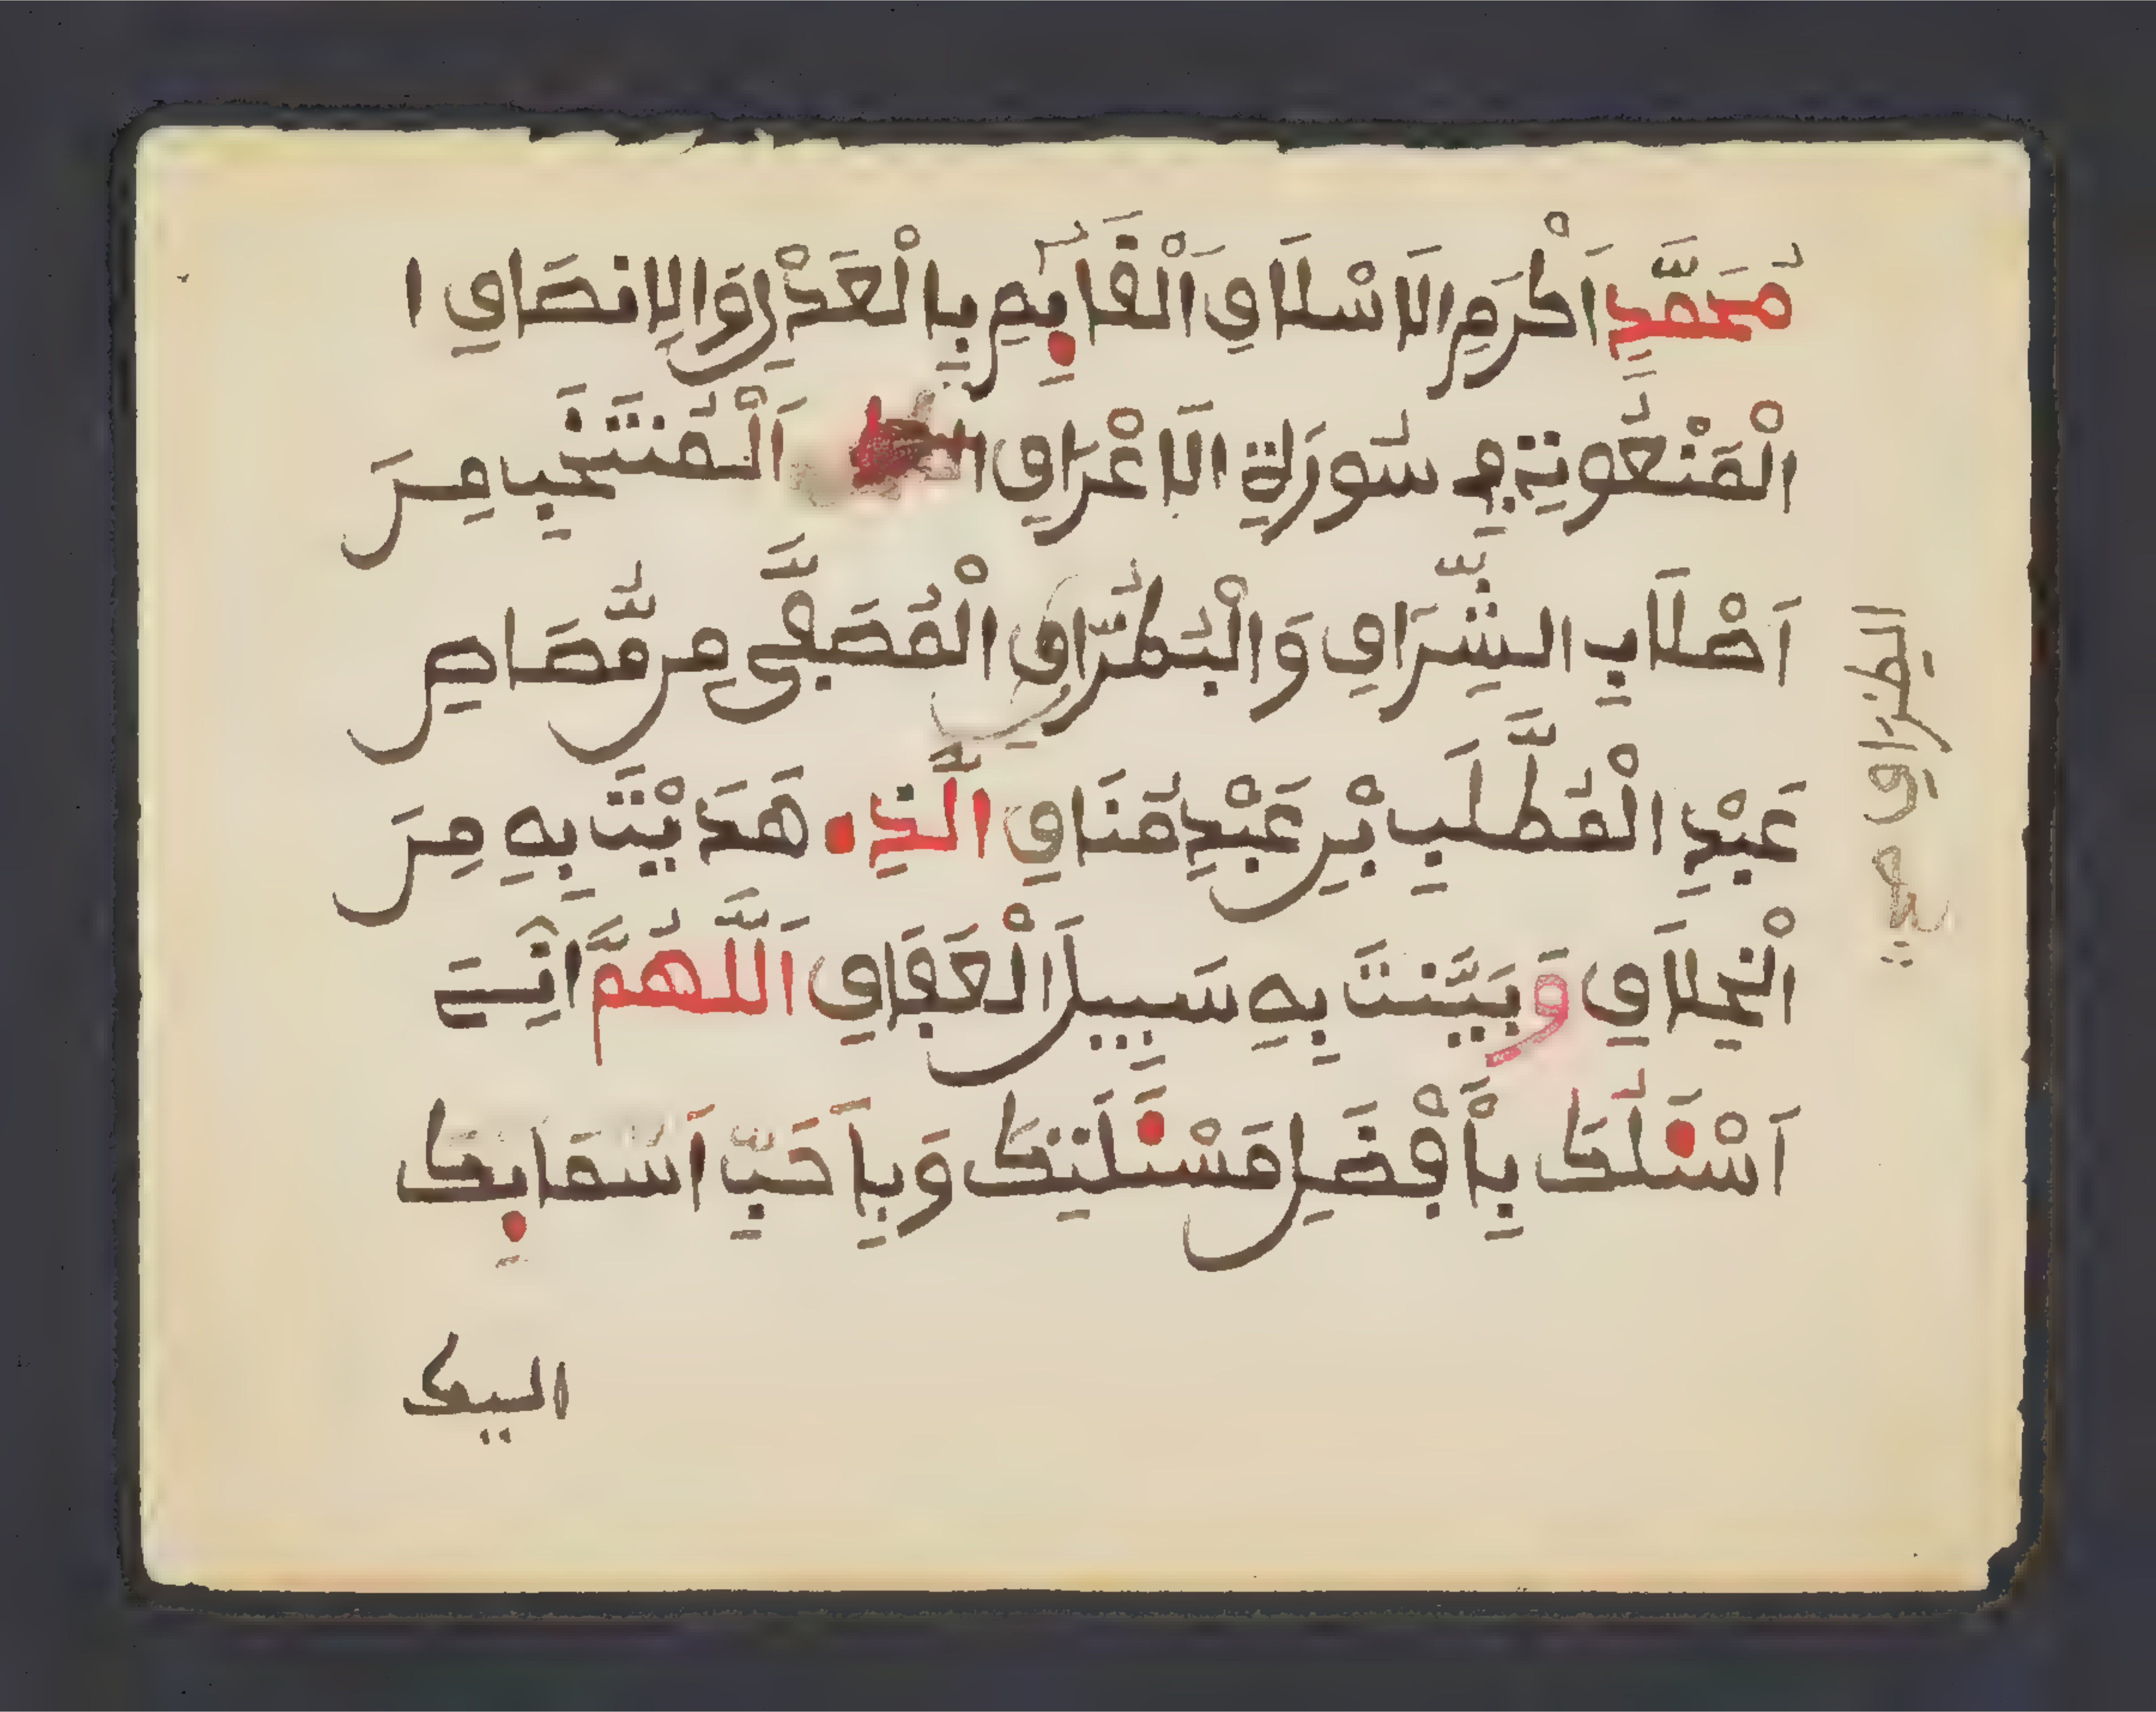 مُحَمَّدٍ اَكْرَمِ الَاسْلَافِ اَلْقَآئِمِ بِالْعَدْلِ وَالِانصَافِ ا
الْمَنْعُوتِ فِي سُورَةِ الَاعْرَافِ اَلْمُنتَخَبِ مِنَ
اَصْلَابِ الشِّرَافِ وَالْبُطُرَافِ الْمُصَفَّى مِن مُّصَاصِ
عَبْدِ الْمُطَّلَبِ بْنِ عَبْدِ مَنَافِ الَّذِے هَدَيْتَ بِهِ مِنَ
الْخِلَافِ وَبَيَّنتَ بِهِ سَبِيلَ الْعَفَافِ اَللَّهُمَّ اِنِّے
اَسْئَلُكَ بِأَفْضَلِ مَسْئَلَتِكَ وَبِأَحَبِّ اَسْمَائِكَ
اليك
الظرَافِ صح